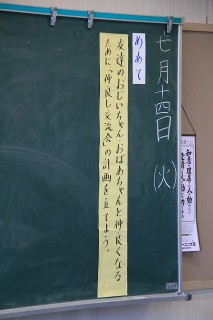 七月十四日（火）
めあて
友達のおじいちゃんおばあちゃんと仲良くなる
ために「仲良し交流会」の計画を立てよう。